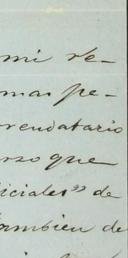 mi re-
mas pe-
rrendatario
rzo que
iciales" de
ambien de